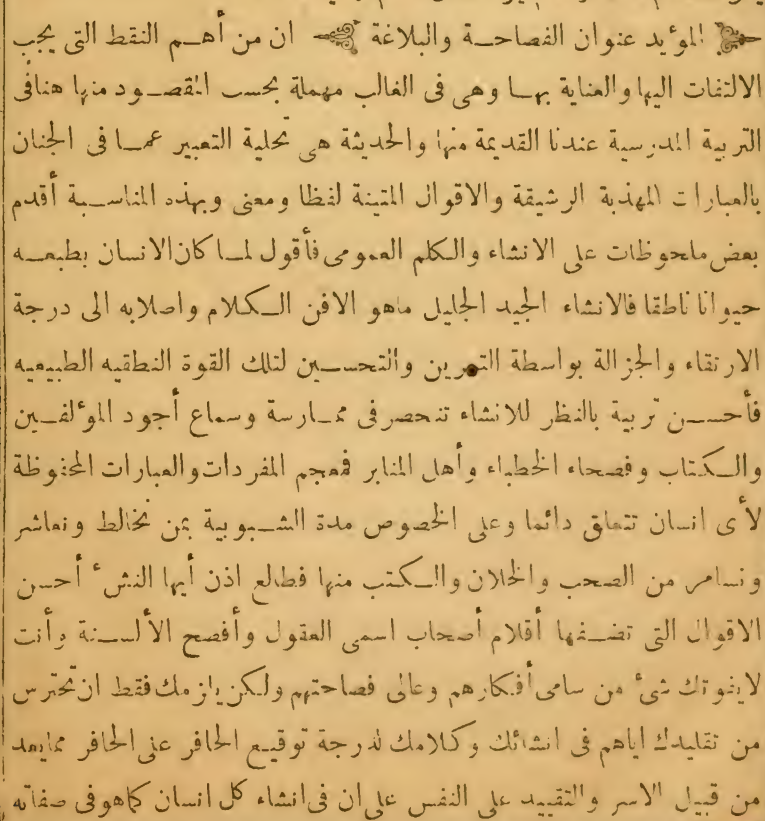 المؤيد عنوان الفصاحة والبلاغة ان من أهم النقط التى يجب
الالتفات اليها والعناية بها وهى فى الغالب مهملة بحسب المقصود منها هنا فى
التربية المدرسية عندنا القديمة منها والحديثة هى تحلية التعبير عما فى الجنان
بالعبارات المهذبة الرشيقة والاقوال المتينة لفظا ومعنى وبهذه المناسبة أقدم
بعض ملحوظات على الانشاء والكلم العمومى فأقول لما كان الانسان بطبعه
حيوانا ناطقا فالانشاء الجيد الجليل ماهو الافن الكلام واصلابه الى درجة
الارتقاء والجزالة بواسطة التمرين والتحسين لتلك القوة النطقيه الطبيعيه
فأحسن تربية بالنظر للانشاء تنحصر فى ممارسة وسماع أجود المؤلفين
والكتاب وفصحاء الخطباء وأهل المنابر فمعجم المفردات والعبارات المحفوظة
لأى انسان تتعلق دائما وعلى الخصوص مدة الشبوبية بمن نخالط ونعاشر
ونسامر من الصحب والخلان والكتب منها فطالع اذن أيها النشء أحسن
الاقوال التى تضفها أقلام أصحاب اسمى العقول وأفصح الألسنة وأنت
لايفوتك شئ من سامى أفكارهم وعالى فصاحتهم ولكن يلزمك فقط ان تحترس
من تقليدك اياهم فى انشائك وكلامك لدرجة توقيع الحافر على الحافر مما يعد
من قبيل الاسر والتقييد على النفس على ان فى انشاء كل انسان كما هو فى صفاته